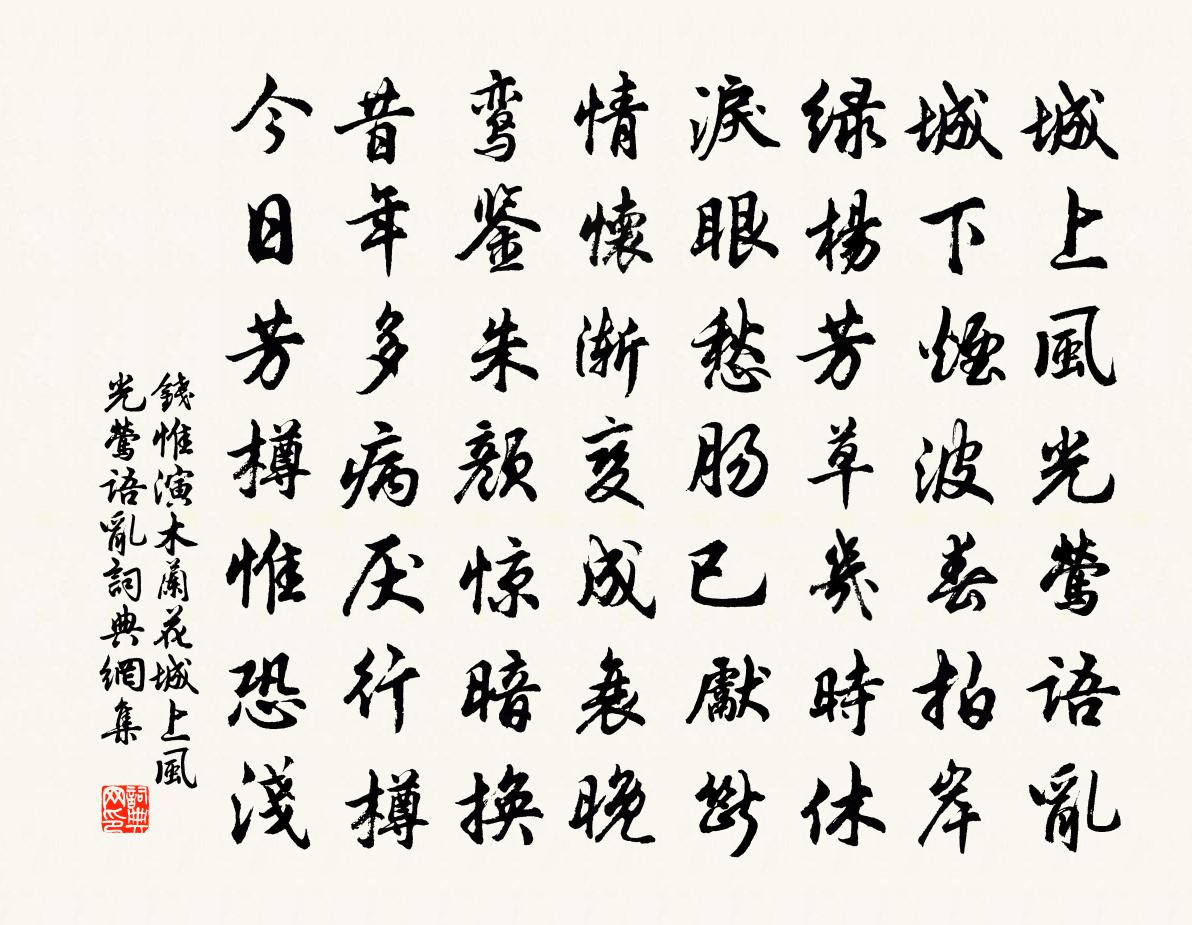 城上風光鶯語亂
城下煙波春拍岸
緑楊芳草幾時休
淚眼愁腸已獻斷
情懷漸變成衰晚
鸾鑒朱顏惊暗換
昔年多病厌行樽
今日芳樽惟恐淺
錢惟演木蘭花城上風
光鶯語亂詞典網集
詞典
网印